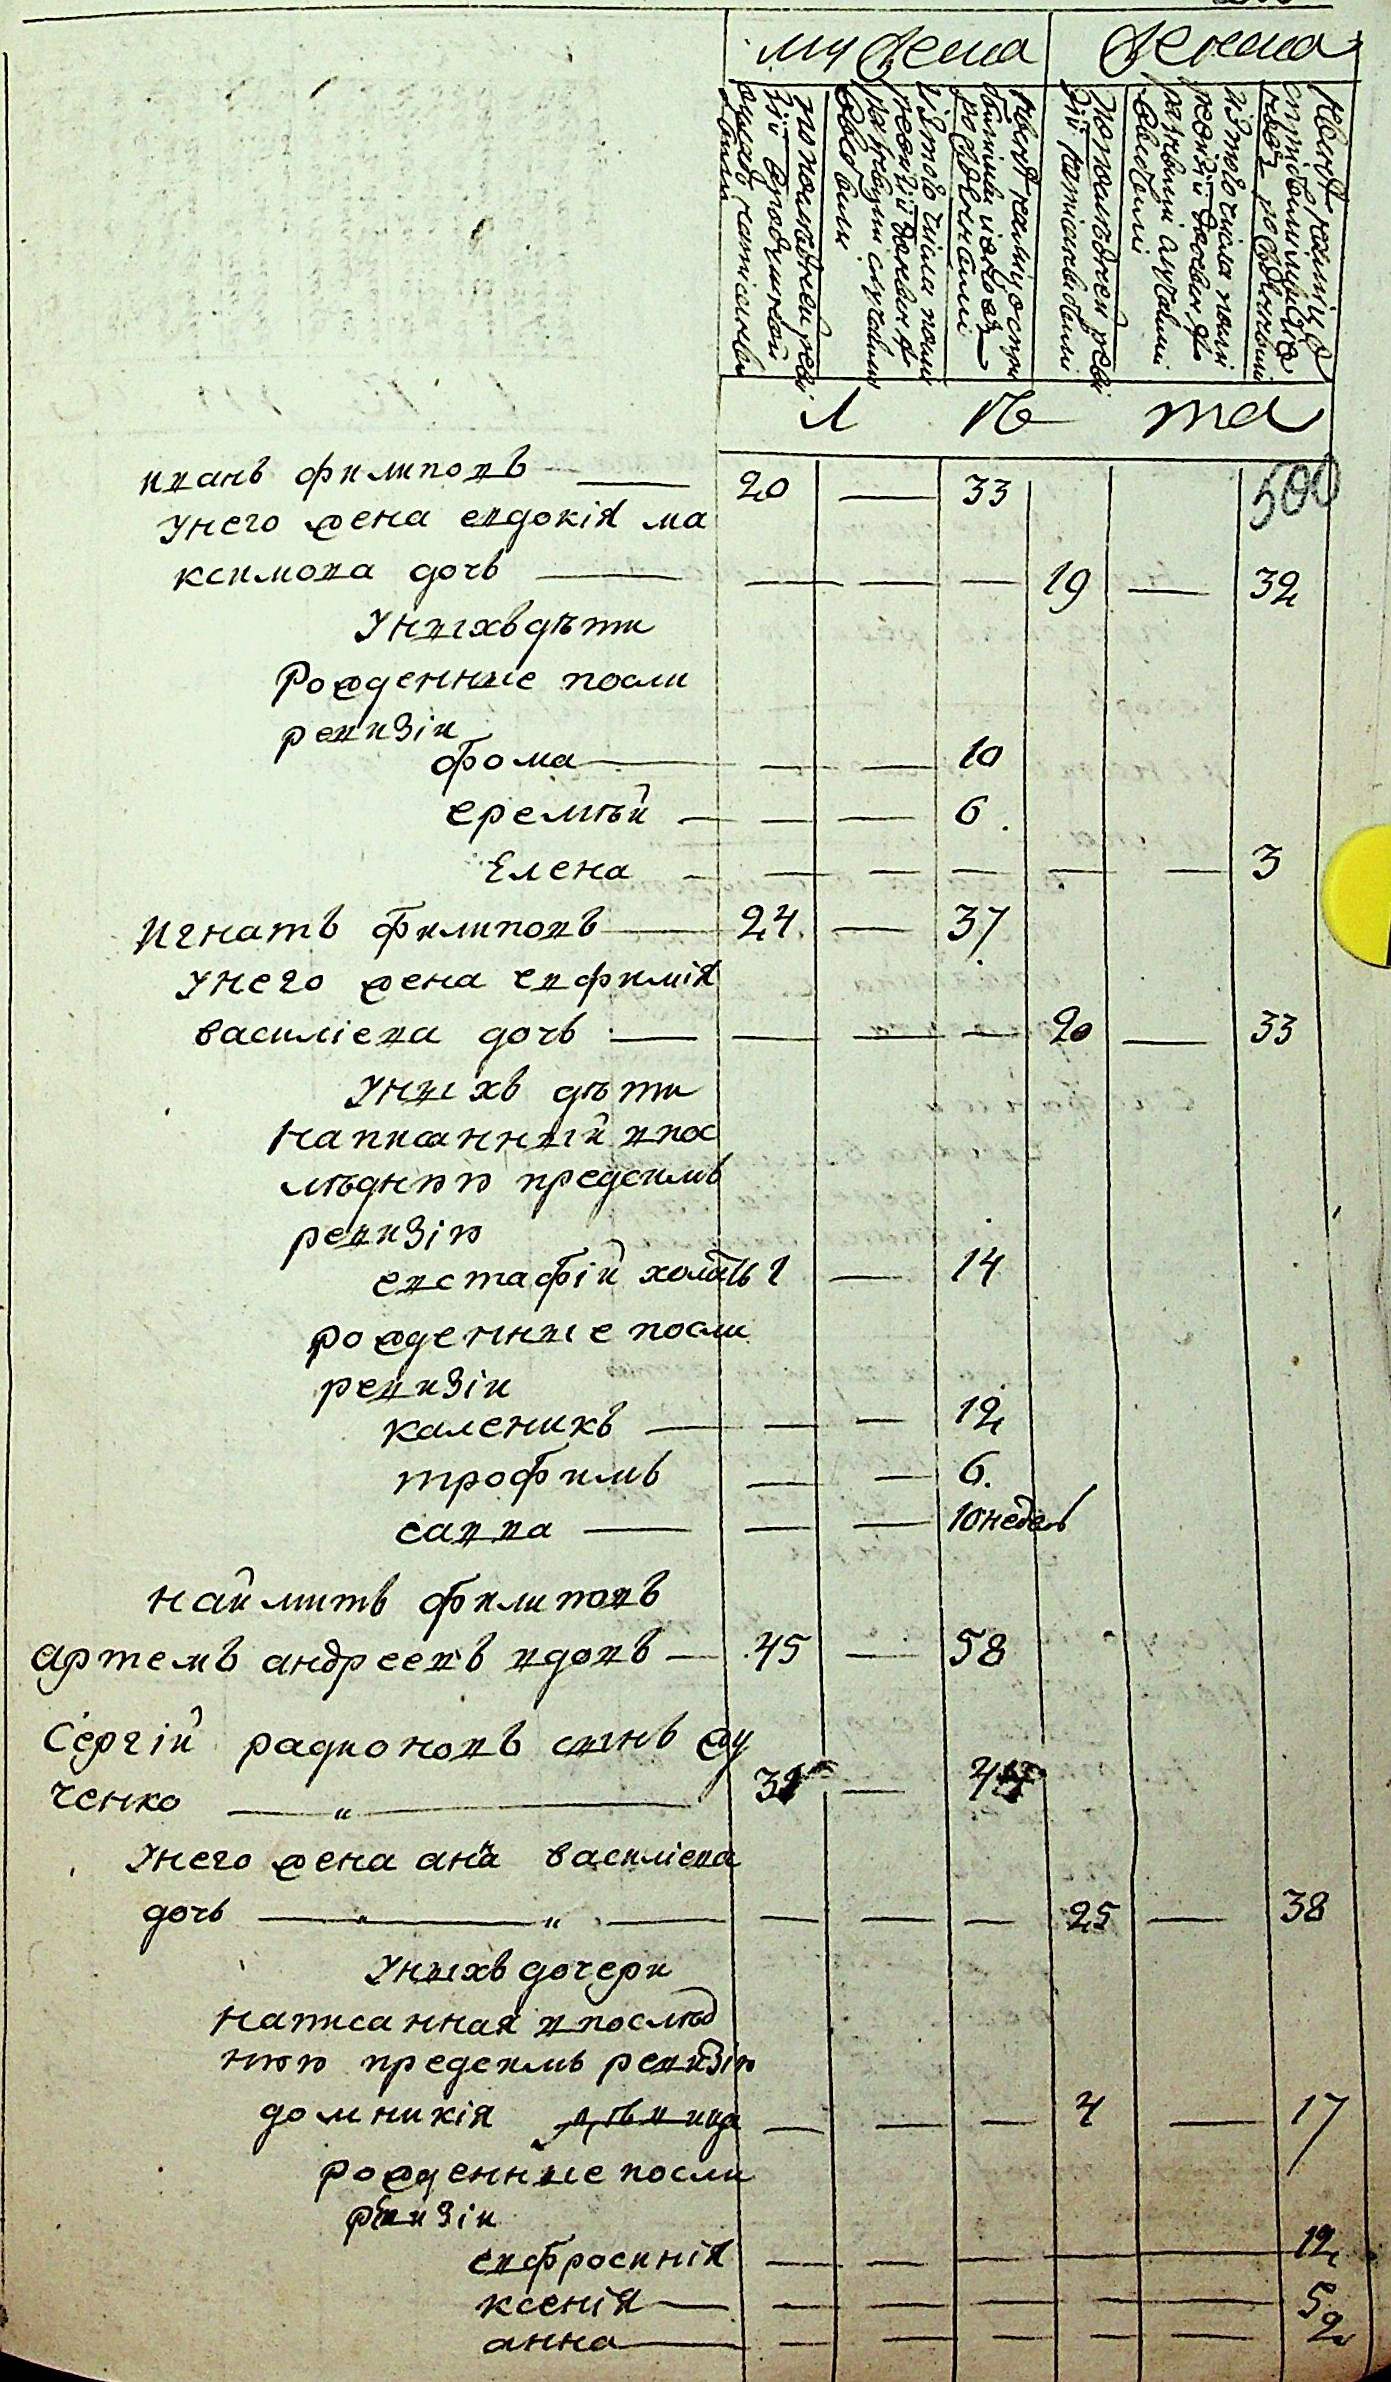 мужеска женска
По последней реви
зіи
написаннымъ
были
Изтого числа после
ревизіи
разными случаями
выбыли
рожденными
По последней реви
зіи написаны были
Изтого числа после
ревизіи
разными случаями
выбыли
рожденными
л ѣ та
500
иванъ филиповъ — 20 — 33
Унего жена евдокія ма
ксимова дочь — — — — 19 — 32
Унихъ дѣти
Рожденные посли
ревизіи
фома — — — 10
еремѣй — — — 6
Елена — — — — — — 3
Игнатъ филиповъ — 24 — 37
Унего жена евфимія
василіева дочь — — — — 20 — 33
Унихъ дѣти
написанный впос
лѣднюю предсимъ
ревизію
евстафій холостъ 1 — 14
рожденные посли
ревизіи
каленикъ — — — 12
трофимъ — — 6.
савва — — — 10 недель
наймитъ филиповъ
артемъ андреевъ вдовъ — 45 — 58
Сергій радионовъ сынъ жу
ченко — „ — 31 — 44
Унего жена анна василіева
дочь — „ — „ — — — — 25 — 38
Унихъ дочери
написанная впослѣд
нюю предсимъ ревизію
домникія дѣвица — — — 4 — 17
рожденные посли
ревизіи
евфросинія — — — — — 12
ксенія — — — — — — 5
анна — — — — — — 2